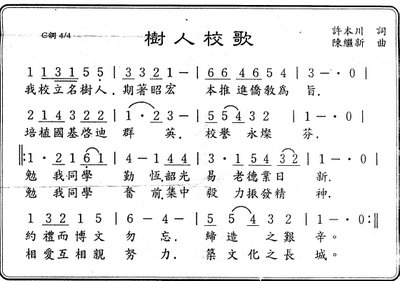 樹人校歌
C調 4/4
許本川 詞
陳繼新 曲
1 1 3 1 5 5 | 3 2 3 1 – | 0 6 6 4 6 5 4 | 3 – · 0 |
我校立名樹人．期著昭宏 本推進僑教為 旨．
2 1 4 3 2 2 | 1 · 2 3 – | 5 5 4 3 2 | 1 – · 0 |
培植國基啓迪 群 英． 校譽永燦 芬．
‖: 1 · 2 1 6 1 | 6 – 4 – | 4 5 · 1 5 4 3 2 | 3 – · 0 |
勉 我同學 勤恆韶光 易 老德業日 新．
勉 我同學 奮前集中 毅力振發精 神．
1 3 2 1 5 | 6 – 4 – | 5 5 4 3 2 | 1 – · 0 :‖
約禮而博文 勿 忘． 締造 之艱 辛。
相愛互相親 努 力． 築文化之長 城。